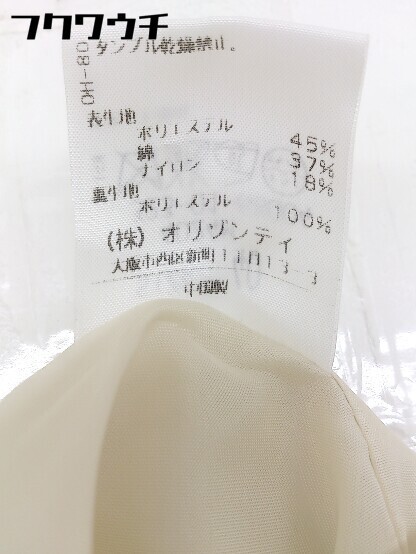 フクワウチ
08-H0
タンブル乾燥禁止。
表生地
ポリエステル 45%
綿 37%
ナイロン 18%
裏生地
ポリエステル 100%
(株)オリゾンティ
大阪市西区新町1丁目13-3
中国製